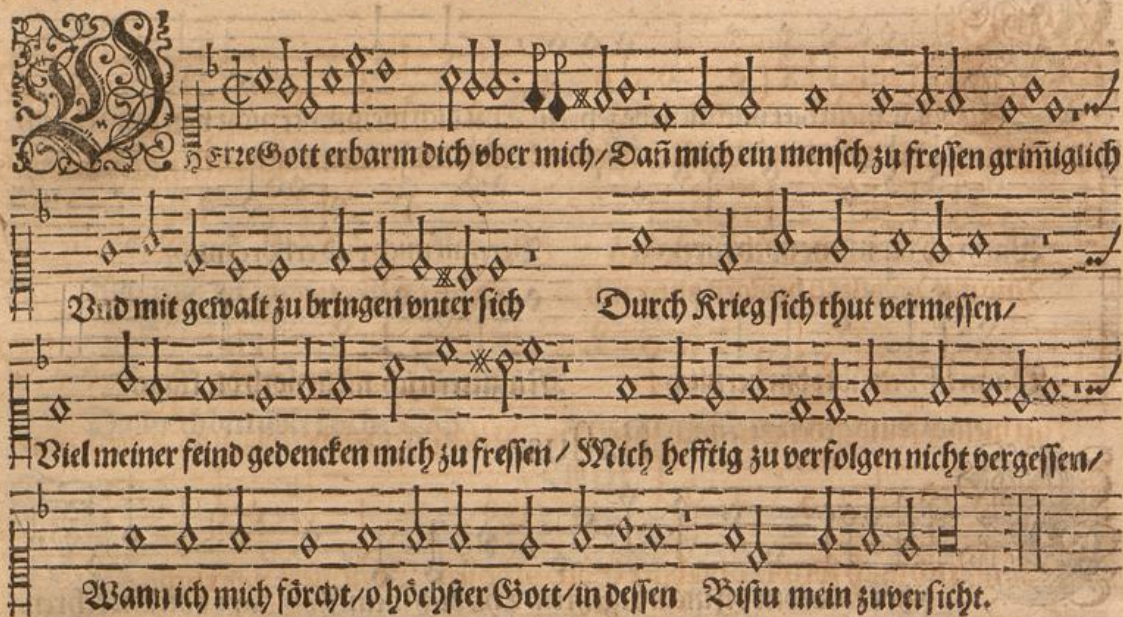 O HErreGott erbarm dich vber mich/Dañ mich ein mensch zu fressen grim̃iglich
Vnd mit gewalt zu bringen vnter sich Durch Krieg sich thut vermessen/
Viel meiner feind gedencken mich zu fressen/ Mich hefftig zu verfolgen nicht vergessen/
Wann ich mich förcht/o höchster Gott/in dessen Bistu mein zuversicht.